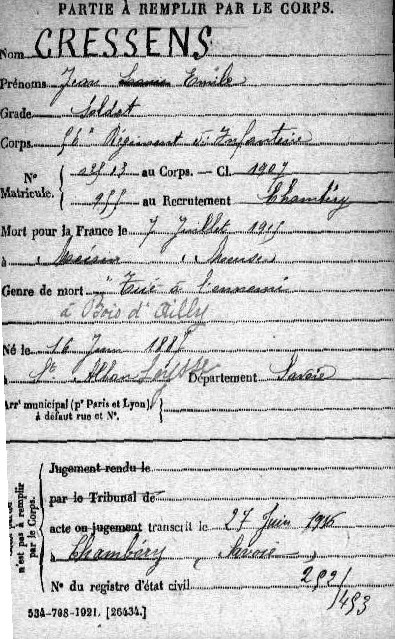 PARTIE À REMPLIR PAR LE CORPS.
Nom CRESSENS
Prénoms Jean Louis Emile
Grade Soldat
Corps 56e Régiment d'Infanterie
N° Matricule. { 02513 au Corps. — Cl. 1907
955 au Recrutement Chambéry
Mort pour la France le 7 Juillet 1915
à Meuse
Genre de mort Tué à l'ennemi
à Bois d'Ailly
Né le 16 Juin
à St Alban Leysse Département Savoie
Arrt municipal (pr Paris et Lyon), à défaut rue et N°.
n'est pas à remplir par le Corps.
Jugement rendu le
par le Tribunal de
acte ou jugement transcrit le 27 Juin 1916
à Chambéry, Savoie
N° du registre d'état civil 292/493
534-708-1921. [26434.]